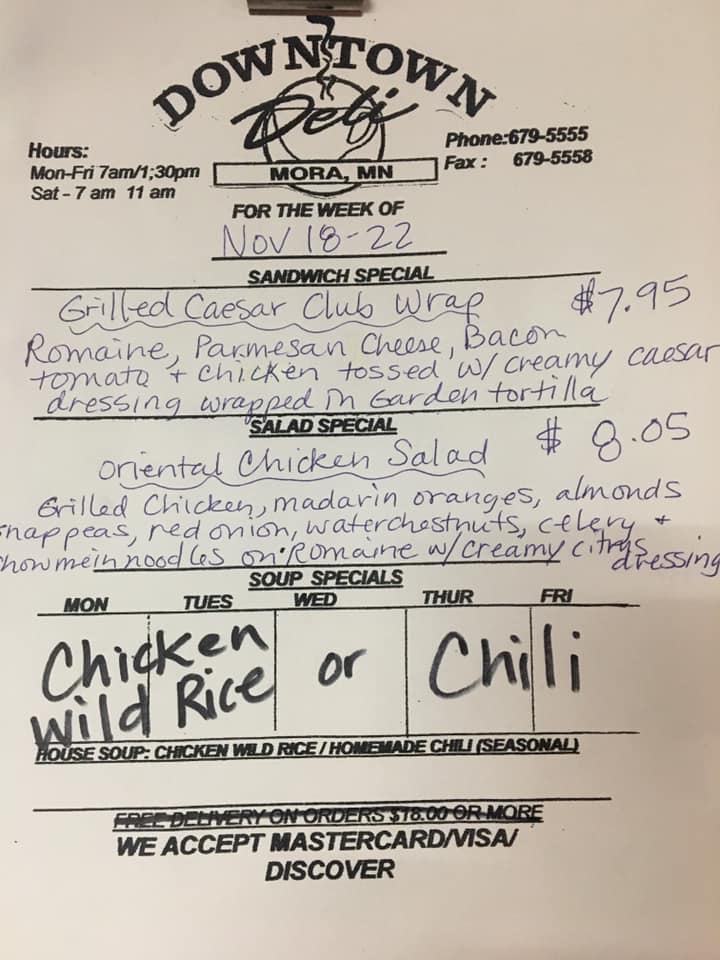 DOWNTOWN
Deli
MORA, MN
Hours:
Mon-Fri 7am/1;30pm
Sat - 7 am 11 am
Phone:679-5555
Fax : 679-5558
FOR THE WEEK OF
Nov 18-22
SANDWICH SPECIAL
Grilled Caesar Club Wrap $7.95
Romaine, Parmesan Cheese, Bacon
tomato + chicken tossed w/ creamy caesar
dressing wrapped in Garden tortilla
SALAD SPECIAL
Oriental Chicken Salad $ 8.05
Grilled Chicken, madarin oranges, almonds
nap peas, red onion, waterchestnuts, celery +
howmein noodles on Romaine w/creamy citrus
dressing
SOUP SPECIALS
MON TUES WED THUR FRI
Chicken
Wild Rice or Chili
HOUSE SOUP: CHICKEN WILD RICE / HOMEMADE CHILI (SEASONAL)
FREE DELIVERY ON ORDERS $18.00 OR MORE
WE ACCEPT MASTERCARD/VISA/
DISCOVER